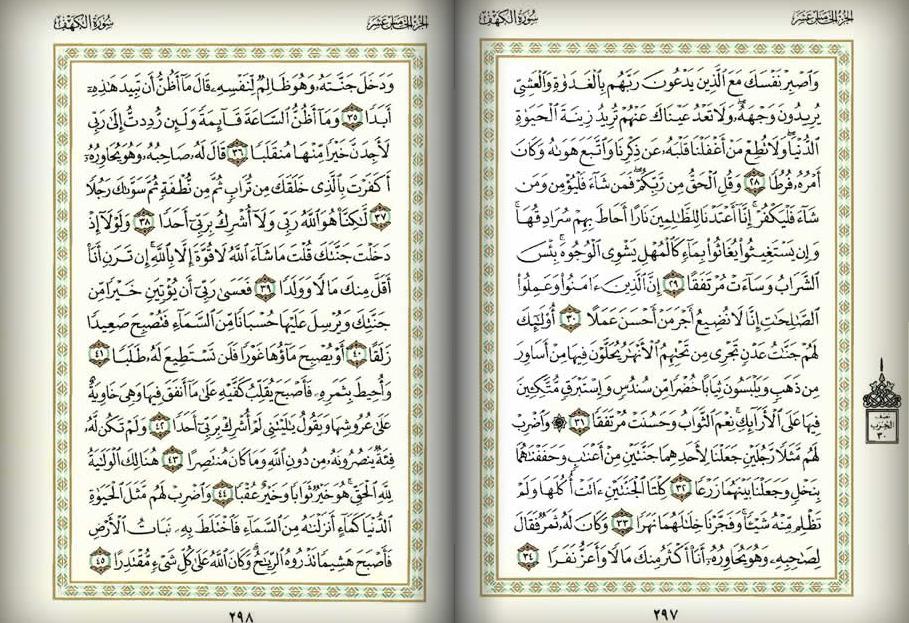 الجزء الخامس عشر
سورة الكهف
وَٱصۡبِرۡ نَفۡسَكَ مَعَ ٱلَّذِينَ يَدۡعُونَ رَبَّهُم بِٱلۡغَدَوٰةِ وَٱلۡعَشِيِّ
يُرِيدُونَ وَجۡهَهُۥۖ وَلَا تَعۡدُ عَيۡنَاكَ عَنۡهُمۡ تُرِيدُ زِينَةَ ٱلۡحَيَوٰةِ
ٱلدُّنۡيَاۖ وَلَا تُطِعۡ مَنۡ أَغۡفَلۡنَا قَلۡبَهُۥ عَن ذِكۡرِنَا وَٱتَّبَعَ هَوَىٰهُ وَكَانَ
أَمۡرُهُۥ فُرُطٗا ٢٨ وَقُلِ ٱلۡحَقُّ مِن رَّبِّكُمۡۖ فَمَن شَآءَ فَلۡيُؤۡمِن وَمَن
شَآءَ فَلۡيَكۡفُرۡۚ إِنَّآ أَعۡتَدۡنَا لِلظَّٰلِمِينَ نَارًا أَحَاطَ بِهِمۡ سُرَادِقُهَاۚ
وَإِن يَسۡتَغِيثُواْ يُغَاثُواْ بِمَآءٖ كَٱلۡمُهۡلِ يَشۡوِي ٱلۡوُجُوهَۚ بِئۡسَ
ٱلشَّرَابُ وَسَآءَتۡ مُرۡتَفَقًا ٢٩ إِنَّ ٱلَّذِينَ ءَامَنُواْ وَعَمِلُواْ
ٱلصَّٰلِحَٰتِ إِنَّا لَا نُضِيعُ أَجۡرَ مَنۡ أَحۡسَنَ عَمَلًا ٣٠ أُوْلَٰٓئِكَ
لَهُمۡ جَنَّٰتُ عَدۡنٖ تَجۡرِي مِن تَحۡتِهِمُ ٱلۡأَنۡهَٰرُ يُحَلَّوۡنَ فِيهَا مِنۡ أَسَاوِرَ
مِن ذَهَبٖ وَيَلۡبَسُونَ ثِيَابًا خُضۡرٗا مِّن سُندُسٖ وَإِسۡتَبۡرَقٖ مُّتَّكِـِٔينَ
فِيهَا عَلَى ٱلۡأَرَآئِكِۚ نِعۡمَ ٱلثَّوَابُ وَحَسُنَتۡ مُرۡتَفَقٗا ٣١ ۞ وَٱضۡرِبۡ
لَهُم مَّثَلٗا رَّجُلَيۡنِ جَعَلۡنَا لِأَحَدِهِمَا جَنَّتَيۡنِ مِنۡ أَعۡنَٰبٖ وَحَفَفۡنَٰهُمَا
بِنَخۡلٖ وَجَعَلۡنَا بَيۡنَهُمَا زَرۡعٗا ٣٢ كِلۡتَا ٱلۡجَنَّتَيۡنِ ءَاتَتۡ أُكُلَهَا وَلَمۡ
تَظۡلِم مِّنۡهُ شَيۡـٔٗاۚ وَفَجَّرۡنَا خِلَٰلَهُمَا نَهَرٗا ٣٣ وَكَانَ لَهُۥ ثَمَرٞ فَقَالَ
لِصَٰحِبِهِۦ وَهُوَ يُحَاوِرُهُۥٓ أَنَا۠ أَكۡثَرُ مِنكَ مَالٗا وَأَعَزُّ نَفَرٗا ٣٤
نصف
الحزب
٣٠
٢٩٧
الجزء الخامس عشر
سورة الكهف
وَدَخَلَ جَنَّتَهُۥ وَهُوَ ظَالِمٞ لِّنَفۡسِهِۦ قَالَ مَآ أَظُنُّ أَن تَبِيدَ هَٰذِهِۦٓ
أَبَدٗا ٣٥ وَمَآ أَظُنُّ ٱلسَّاعَةَ قَآئِمَةٗ وَلَئِن رُّدِدتُّ إِلَىٰ رَبِّي
لَأَجِدَنَّ خَيۡرٗا مِّنۡهَا مُنقَلَبٗا ٣٦ قَالَ لَهُۥ صَاحِبُهُۥ وَهُوَ يُحَاوِرُهُۥٓ
أَكَفَرۡتَ بِٱلَّذِي خَلَقَكَ مِن تُرَابٖ ثُمَّ مِن نُّطۡفَةٖ ثُمَّ سَوَّىٰكَ رَجُلٗا
٣٧ لَّٰكِنَّا۠ هُوَ ٱللَّهُ رَبِّي وَلَآ أُشۡرِكُ بِرَبِّيٓ أَحَدٗا ٣٨ وَلَوۡلَآ إِذۡ
دَخَلۡتَ جَنَّتَكَ قُلۡتَ مَا شَآءَ ٱللَّهُ لَا قُوَّةَ إِلَّا بِٱللَّهِۚ إِن تَرَنِ أَنَا۠
أَقَلَّ مِنكَ مَالٗا وَوَلَدٗا ٣٩ فَعَسَىٰ رَبِّيٓ أَن يُؤۡتِيَنِ خَيۡرٗا مِّن
جَنَّتِكَ وَيُرۡسِلَ عَلَيۡهَا حُسۡبَانٗا مِّنَ ٱلسَّمَآءِ فَتُصۡبِحَ صَعِيدٗا
زَلَقًا ٤٠ أَوۡ يُصۡبِحَ مَآؤُهَا غَوۡرٗا فَلَن تَسۡتَطِيعَ لَهُۥ طَلَبٗا ٤١
وَأُحِيطَ بِثَمَرِهِۦ فَأَصۡبَحَ يُقَلِّبُ كَفَّيۡهِ عَلَىٰ مَآ أَنفَقَ فِيهَا وَهِيَ خَاوِيَةٌ
عَلَىٰ عُرُوشِهَا وَيَقُولُ يَٰلَيۡتَنِي لَمۡ أُشۡرِكۡ بِرَبِّيٓ أَحَدٗا ٤٢ وَلَمۡ تَكُن لَّهُۥ
فِئَةٞ يَنصُرُونَهُۥ مِن دُونِ ٱللَّهِ وَمَا كَانَ مُنتَصِرًا ٤٣ هُنَالِكَ ٱلۡوَلَٰيَةُ
لِلَّهِ ٱلۡحَقِّۚ هُوَ خَيۡرٞ ثَوَابٗا وَخَيۡرٌ عُقۡبٗا ٤٤ وَٱضۡرِبۡ لَهُم مَّثَلَ ٱلۡحَيَوٰةِ
ٱلدُّنۡيَا كَمَآءٍ أَنزَلۡنَٰهُ مِنَ ٱلسَّمَآءِ فَٱخۡتَلَطَ بِهِۦ نَبَاتُ ٱلۡأَرۡضِ
فَأَصۡبَحَ هَشِيمٗا تَذۡرُوهُ ٱلرِّيَٰحُۗ وَكَانَ ٱللَّهُ عَلَىٰ كُلِّ شَيۡءٖ مُّقۡتَدِرًا ٤٥
٢٩٨